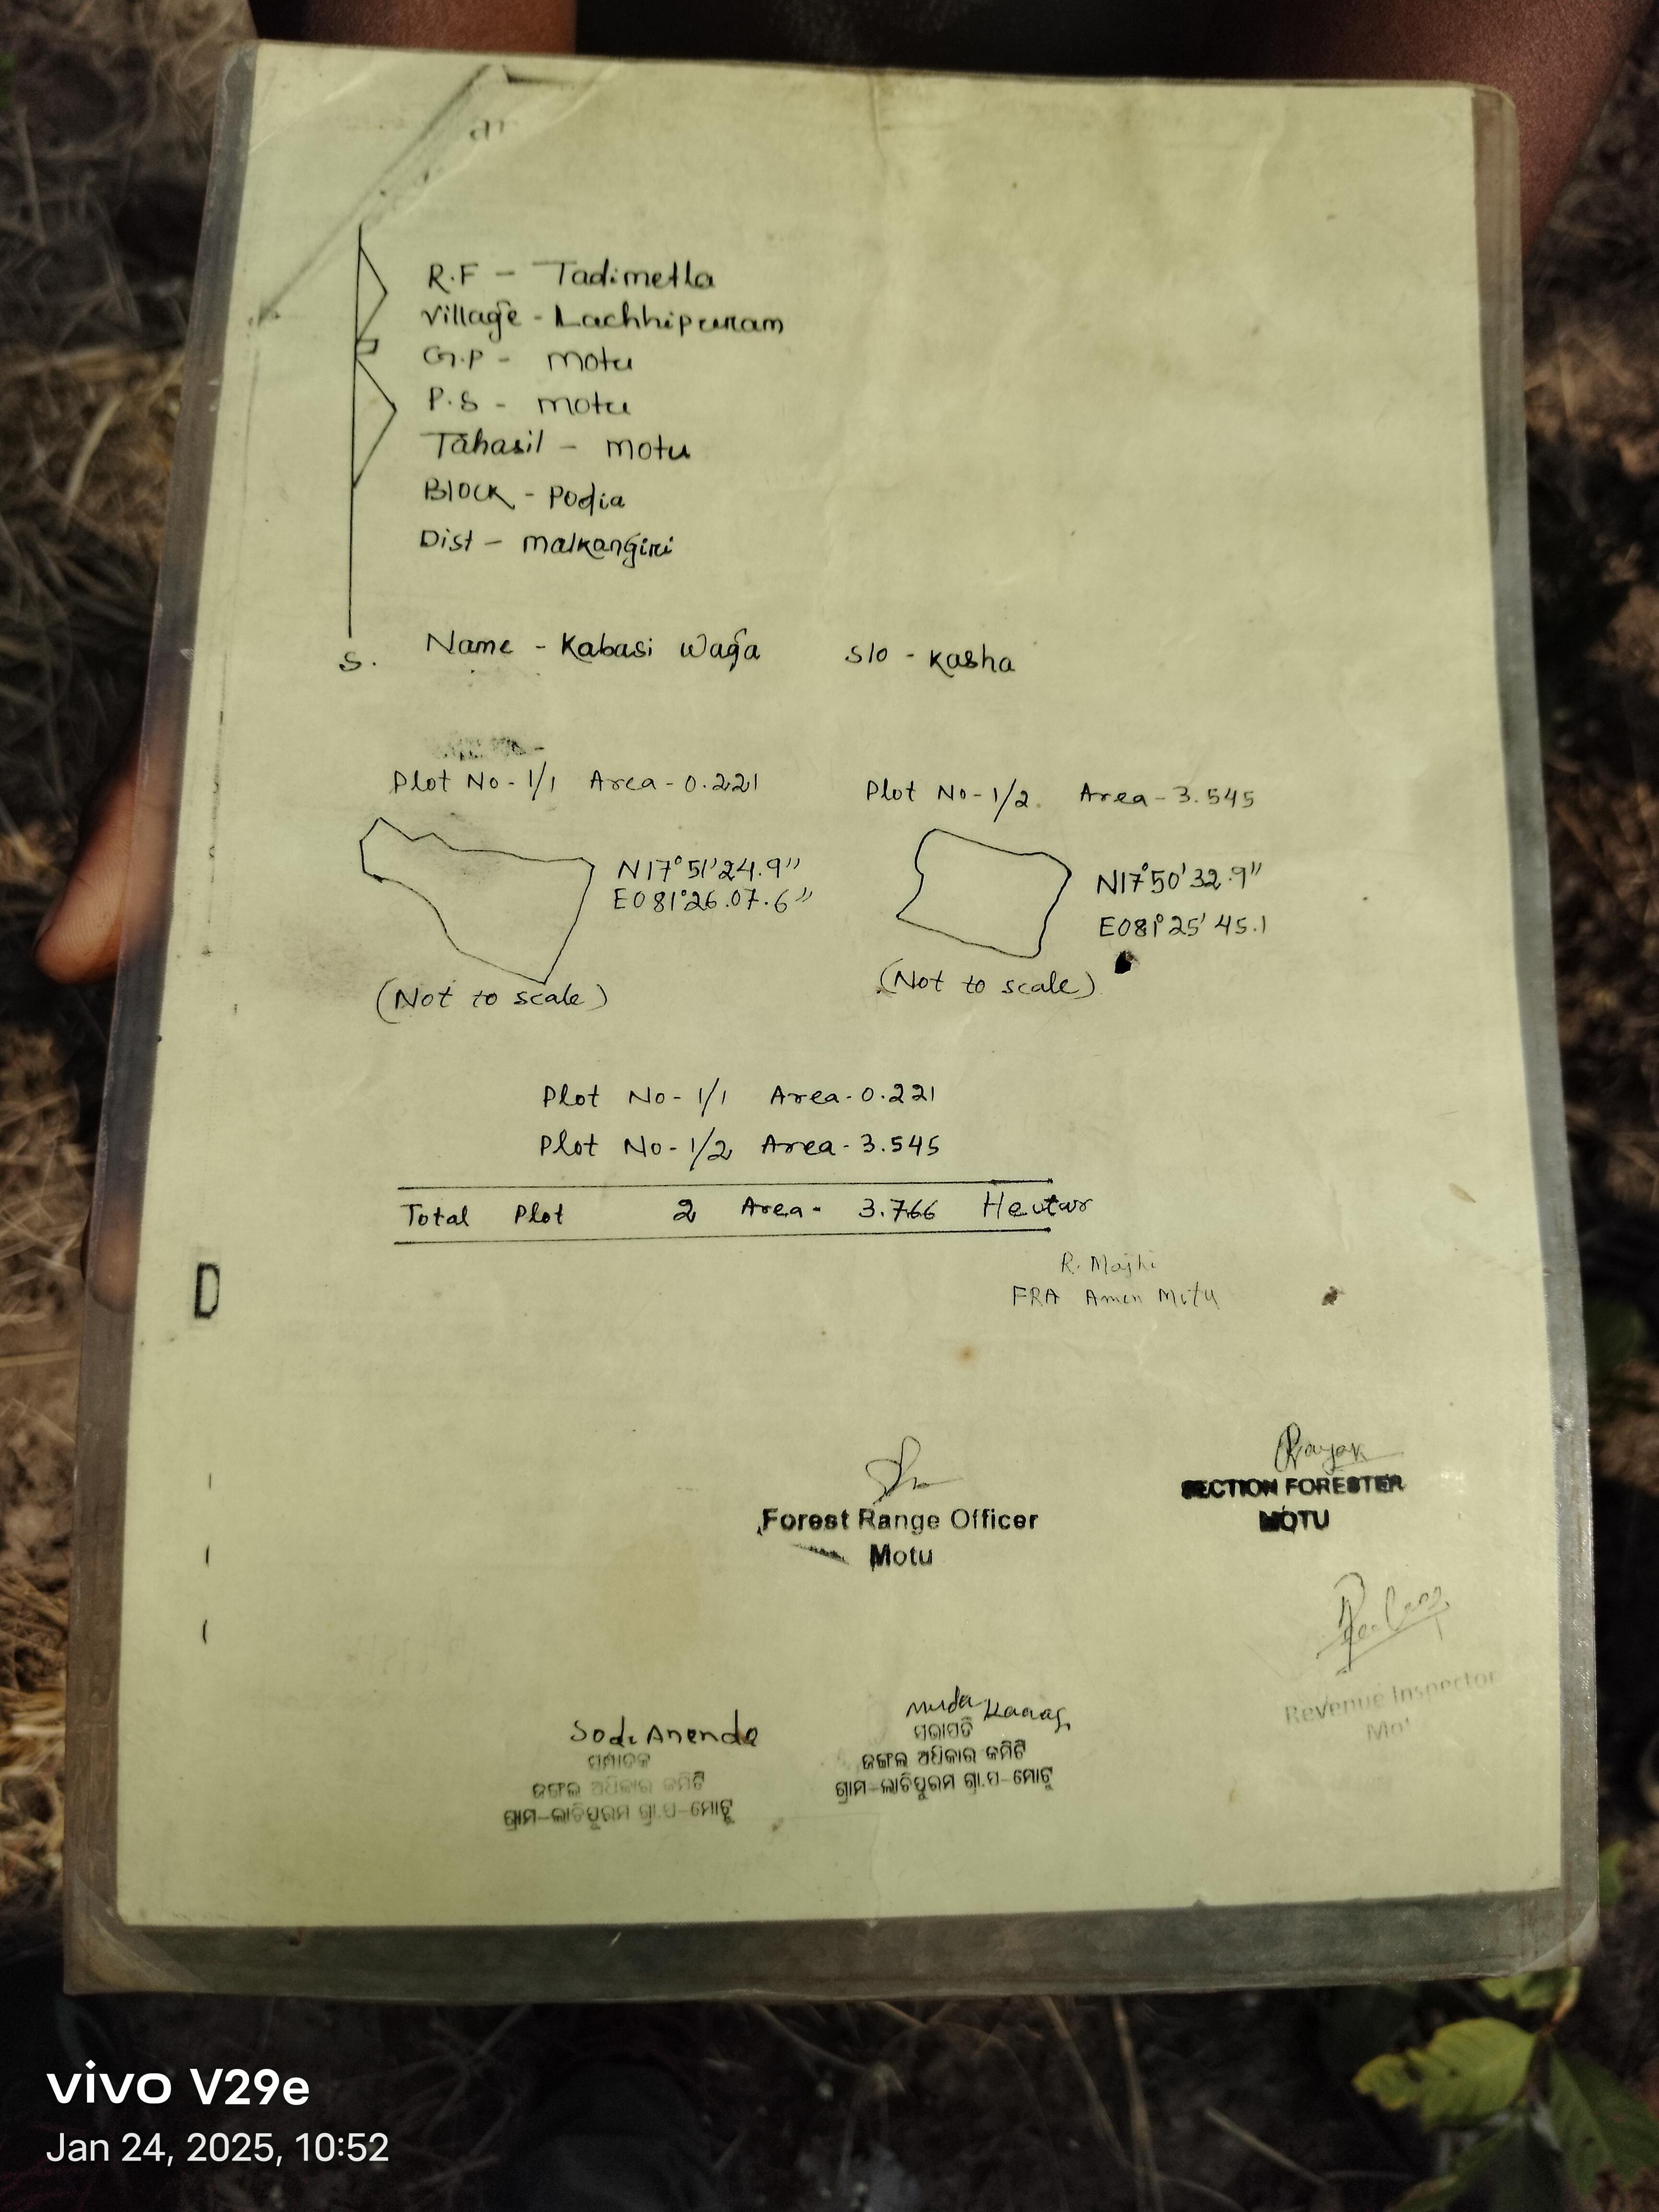 R.F - Tadimetla
village - Lachhipuram
G.P - motu
P.S - motu
Tahasil - motu
Block - Podia
Dist - malkangiri
S.
Name - Kabasi waga S/o - kasha
Plot No - 1/1 Area - 0.221
Plot No - 1/2 Area - 3.545
N17°51'24.9"
E081°26.07.6"
N17°50'32.9"
E081°25'45.1
(Not to scale)
(Not to scale)
Plot No - 1/1 Area - 0.221
Plot No - 1/2 Area - 3.545
Total Plot 2 Area - 3.766 Hectar
R. Majhi
FRA Amin Motu
D
Forest Range Officer
Motu
SECTION FORESTER
MOTU
Revenue Inspector
Sodi Ananda
ସମ୍ପାଦକ
ଜଙ୍ଗଲ ଅଧିକାର କମିଟି
ଗ୍ରାମ-ଲାଚିପୁରମ ଗ୍ରା.ପ-ମୋଟୁ
ସଭାପତି
ଜଙ୍ଗଲ ଅଧିକାର କମିଟି
ଗ୍ରାମ-ଲାଚିପୁରମ ଗ୍ରା.ପ-ମୋଟୁ
vivo V29e
Jan 24, 2025, 10:52